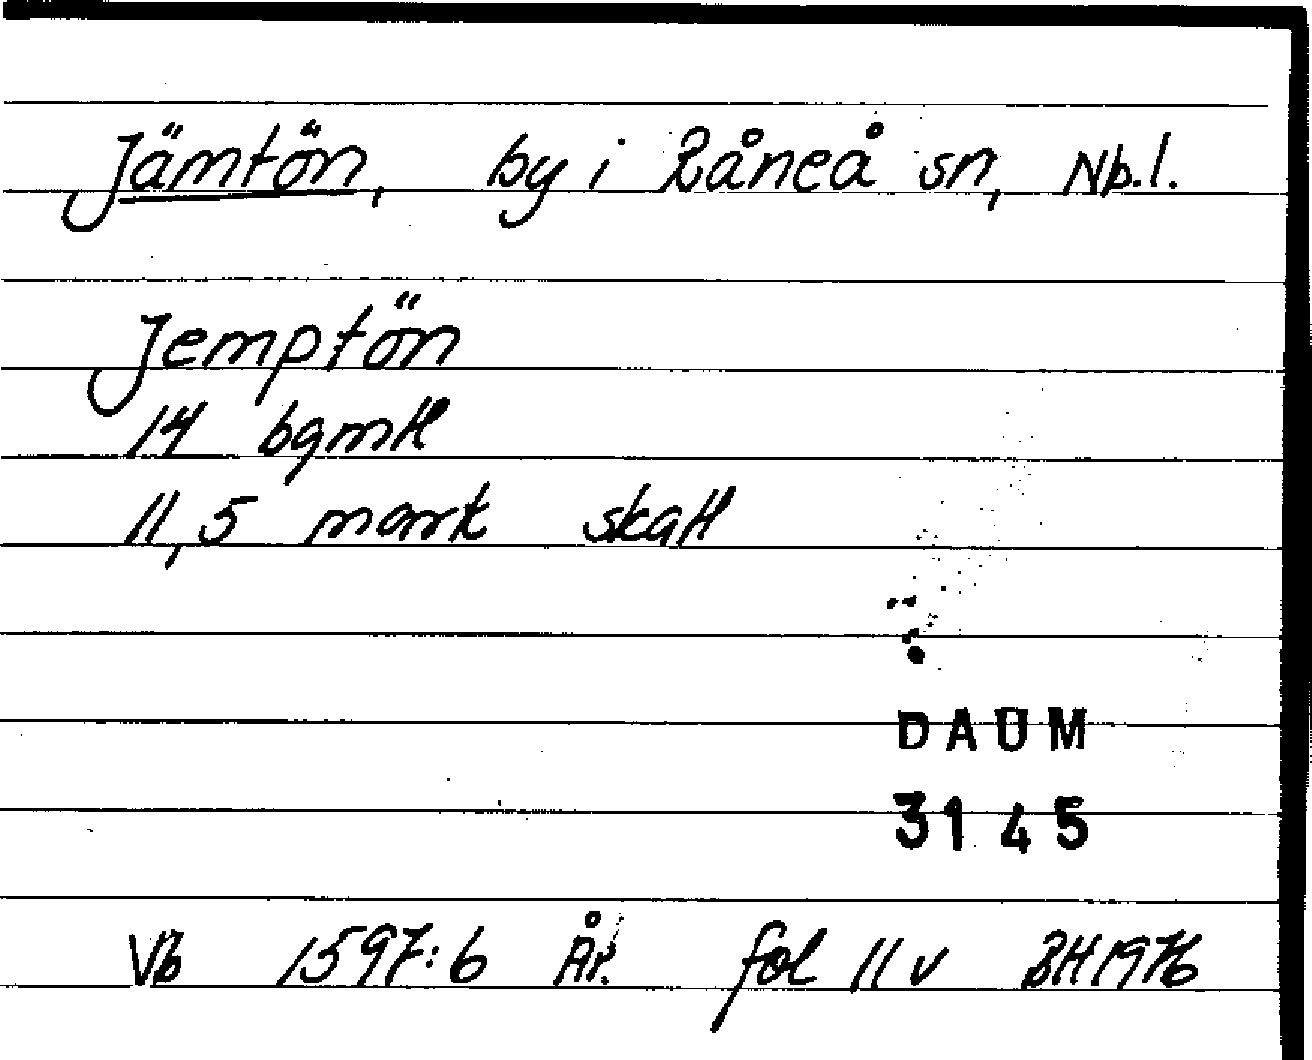 Jämtön, by i Råneå sn, Nb.l.
Jemptön
14 bgmtl
11,5 mark skatt
DAUM
3145
Vb 1597:6 År. fol 11 v BH 1976